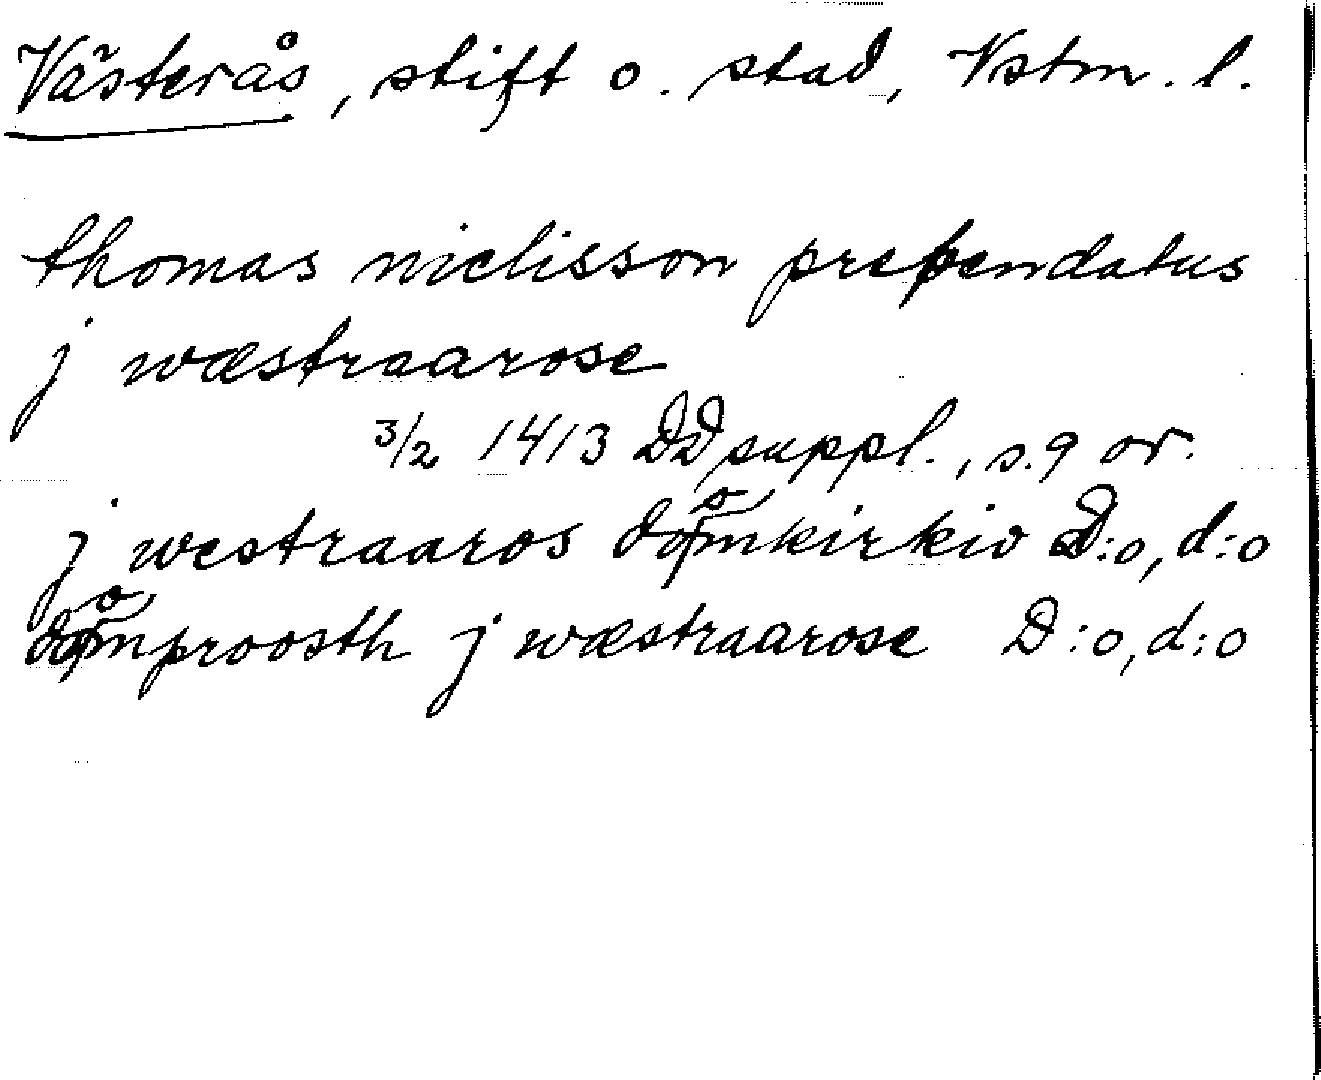 Västerås, stift o. stad, Vstm. l.
thomas niclisson prependatus
j wæstraarose
3/2 1413 DD suppl., s. 9 or.
j westraaros domkirkio D:o, d:o
domproosth j wæstraarose D:o, d:o